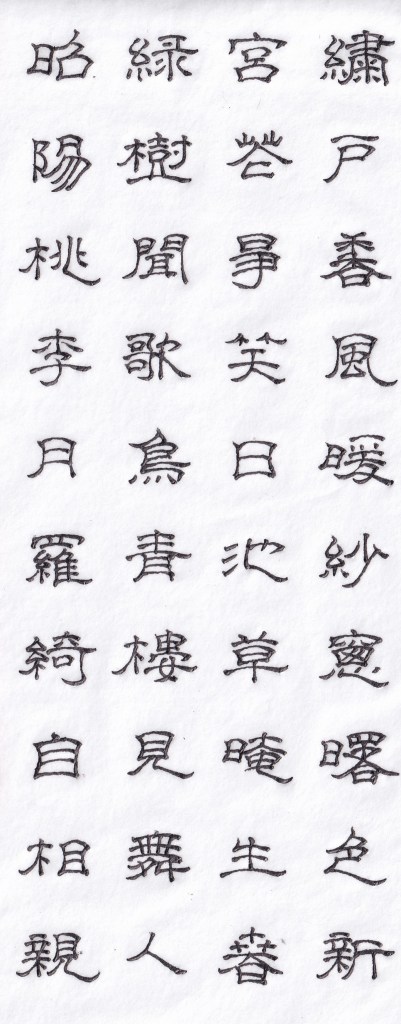 繡戶香風暖紗窻曙色新
宮花爭笑日池草晻生春
緑樹聞歌鳥青樓見舞人
昭陽桃李月羅綺自相親